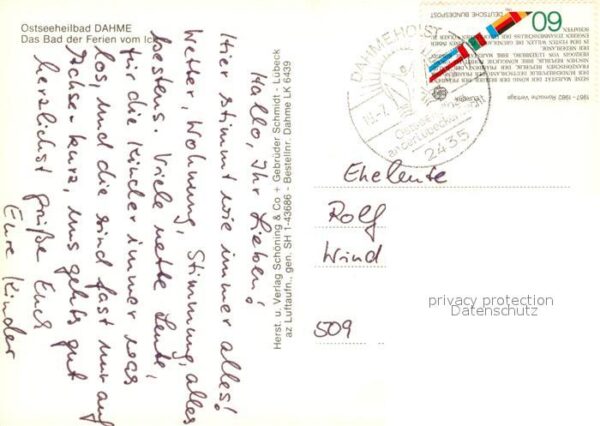 Ostseeheilbad DAHME
Das Bad der Ferien vom Ich
Hallo, Ihr Lieben!
Hier stimmt wie immer alles!
Wetter, Wohnung, Stimmung, alles
bestens. Viele nette Leute,
für die Kinder immer was
los, und die sind fast nur auf
Achse. kurz, uns geht's gut
herzlichst grüße Euch
Eure Kinder
Herst. u. Verlag Schöning & Co + Gebrüder Schmidt - Lübeck
az Luftaufn., gen. SH 1-43686 - Bestellnr. Dahme LK 6439
DAHME HOLST
Ostsee
2435
DEUTSCHE BUNDESPOST
60
1957-1982 Römische Verträge
Eheleute
Rolf
Wind
509
privacy protection
Datenschutz